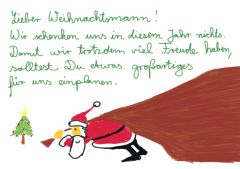 Lieber Weihnachtsmann!
Wir schenken uns in diesem Jahr nichts.
Damit wir trotzdem viel Freude haben,
solltest Du etwas großartiges
für uns einplanen.